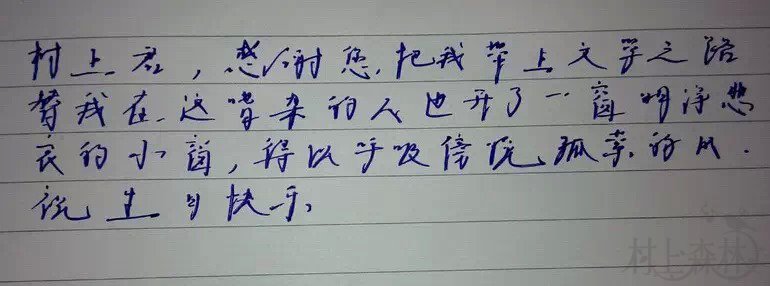 村上君，感谢您，把我带上文学之路
替我在这嘈杂的人世开了一窗明净悲
哀的小窗，得以呼吸倍 孤 的风．
祝生日快乐，
村上森林